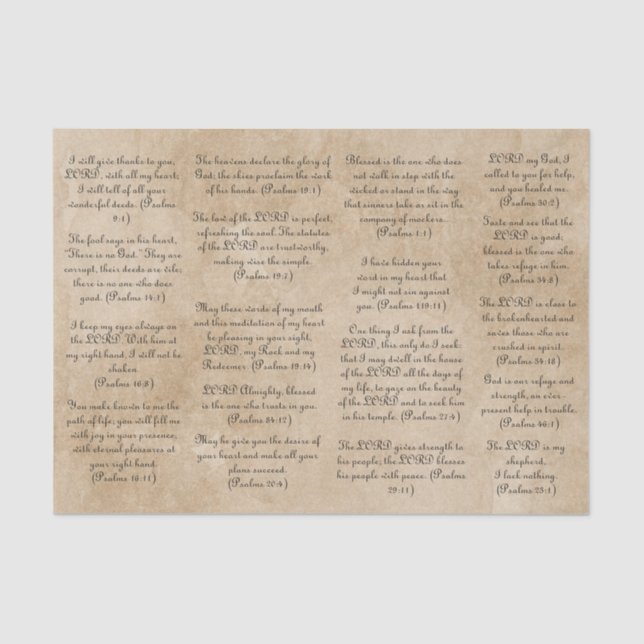 I will give thanks to you,
LORD, with all my heart;
I will tell of all your
wonderful deeds. (Psalms
9:1)
The fool says in his heart,
"There is no God." They are
corrupt, their deeds are vile;
there is no one who does
good. (Psalms 14:1)
I keep my eyes always on
the LORD. With him at
my right hand, I will not be
shaken.
(Psalms 16:8)
You make known to me the
path of life; you will fill me
with joy in your presence,
with eternal pleasures at
your right hand.
(Psalms 16:11)
The heavens declare the glory of
God; the skies proclaim the work
of his hands. (Psalms 19:1)
The law of the LORD is perfect,
refreshing the soul. The statutes
of the LORD are trustworthy,
making wise the simple.
(Psalms 19:7)
May these words of my mouth
and this meditation of my heart
be pleasing in your sight,
LORD, my Rock and my
Redeemer. (Psalms 19:14)
LORD Almighty, blessed
is the one who trusts in you.
(Psalms 84:12)
May he give you the desire of
your heart and make all your
plans succeed.
(Psalms 20:4)
Blessed is the one who does
not walk in step with the
wicked or stand in the way
that sinners take or sit in the
company of mockers...
(Psalms 1:1)
I have hidden your
word in my heart that
I might not sin against
you. (Psalms 119:11)
One thing I ask from the
LORD, this only do I seek:
that I may dwell in the house
of the LORD all the days of
my life, to gaze on the beauty
of the LORD and to seek him
in his temple. (Psalms 27:4)
The LORD gives strength to
his people; the LORD blesses
his people with peace. (Psalms
29:11)
LORD my God, I
called to you for help,
and you healed me.
(Psalms 30:2)
Taste and see that the
LORD is good;
blessed is the one who
takes refuge in him.
(Psalms 34:8)
The LORD is close to
the brokenhearted and
saves those who are
crushed in spirit.
(Psalms 34:18)
God is our refuge and
strength, an ever-
present help in trouble.
(Psalms 46:1)
The LORD is my
shepherd,
I lack nothing.
(Psalms 23:1)